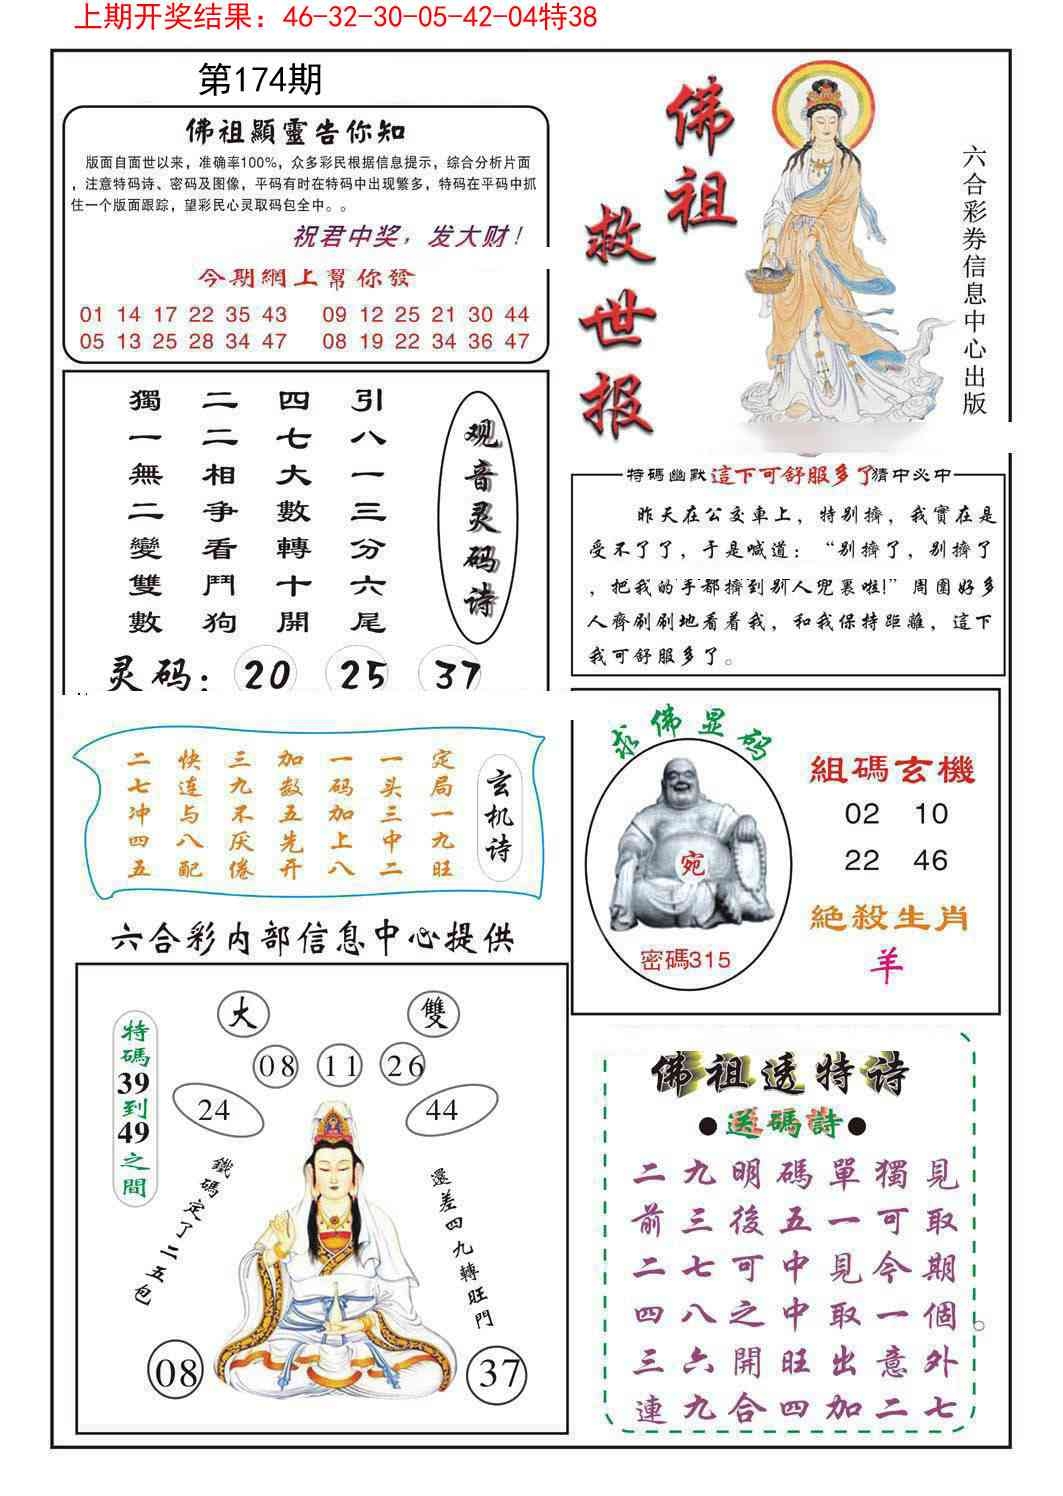 上期开奖结果：46-32-30-05-42-04特38
第174期
佛祖顯靈告你知
版面自面世以来，准确率100%，众多彩民根据信息提示，综合分析片面
，注意特码诗、密码及图像，平码有时在特码中出现繁多，特码在平码中抓
住一个版面跟踪，望彩民心灵取码包全中。。
祝君中奖，发大财！
今期網上幫你發
01 14 17 22 35 43 09 12 25 21 30 44
05 13 25 28 34 47 08 19 22 34 36 47
佛祖
救世报
六合彩券信息中心出版
观音灵码诗
引八一三分六尾
四七大數轉十開
二二相争看鬥狗
獨一無二變雙數
灵码：20 25 37
特碼幽默這下可舒服多了猜中必中
昨天在公交車上，特别擠，我實在是
受不了了，于是喊道：“别擠了，别擠了
，把我的手都擠到别人兜裏啦!”周圍好多
人齊刷刷地看着我，和我保持距離，這下
我可舒服多了。
玄机诗
定局一九旺
一头三中二
一码加上八
加数五先开
三九不厌倦
快连与八配
二七冲四五
求佛显码
宛
密碼315
組碼玄機
02 10
22 46
絕殺生肖
羊
六合彩内部信息中心提供
特碼39到49之間
大 雙
08 11 26
24 44
鐵碼定了二五包
還差四九轉旺門
08 37
佛祖透特诗
●送碼詩●
二九明碼單獨見
前三後五一可取
二七可中見今期
四八之中取一個。
三六開旺出意外
連九合四加二七